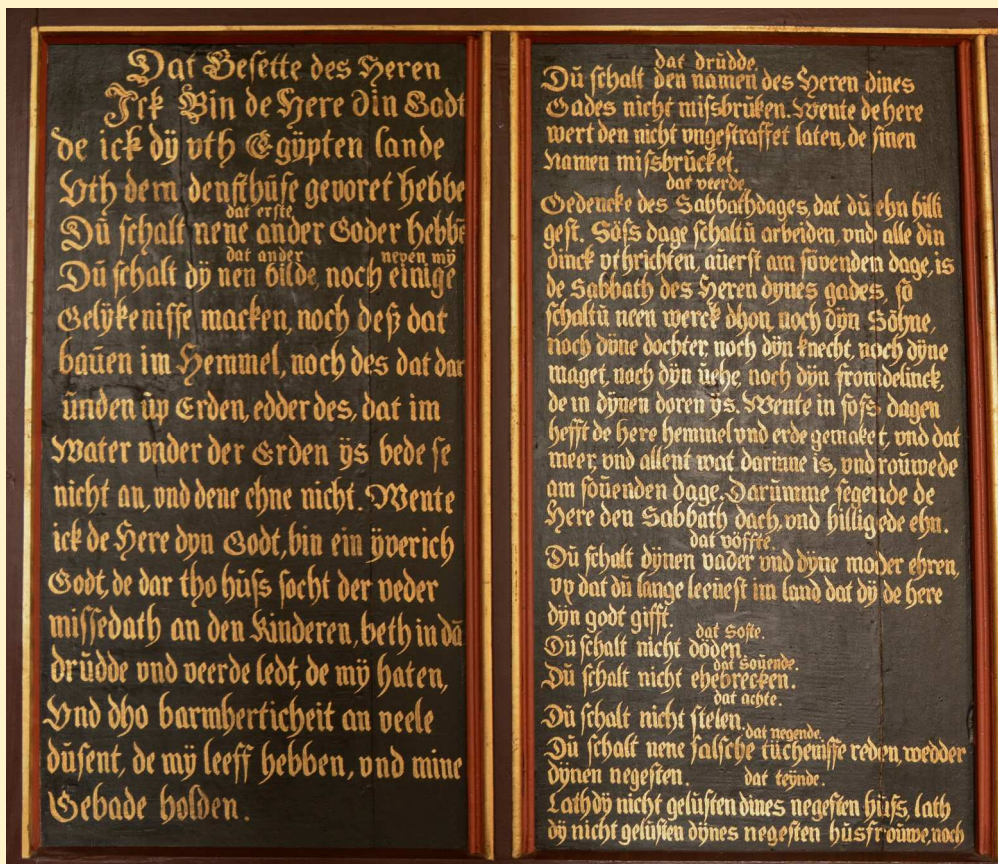 Dat Gesette des Heren
Ick Bin de Here din Godt
de ick dÿ vth Egÿpten lande
Vth dem densthuse gevoret hebbe
dat erste
Dŭ schalt nene ander Goder hebbē
dat ander neven mÿ
Dŭ schalt dÿ nen bilde, noch einige
Gelÿkenisse macken, noch deß dat
baŭen im Hemmel, noch des dat dar
ŭnden ŭp Erden, edder des, dat im
Water vnder der Erden ÿs bede se
nicht an, vnd dene ehne nicht. Wente
ick de Here dyn Godt, bin ein ÿverich
Godt, de dar tho hŭss socht der veder
missedath an den Kinderen, beth in dā
drŭdde vnd veerde ledt, de mÿ haten,
Vnd dho barmherticheit an veele
dŭsent, de mÿ leeff hebben, vnd mine
Gebade holden.
dat drŭdde
Dŭ schalt den namen des Heren dines
Gades nicht missbrŭken. Wente de here
wert den nicht vngestraffet laten, de sinen
Namen missbrŭcket.
dat veerde
Gedencke des Sabbathdages, dat dŭ ehn hilli
gest. Söss dage schaltŭ arbeiden, vnd alle din
dinck vthrichten, aŭerst am sövenden dage, is
de Sabbath des Heren dynes gades, so
schaltŭ neen werck dhon, noch dÿn Söhne,
noch dÿne dochter, noch dÿn knecht, noch dÿne
maget, noch dÿn ŭehe, noch dÿn fromdelinck,
de in dÿnen doren ÿs. Wente in soss dagen
hefft de here hemmel vnd erde gemaket, vnd dat
meer, vnd allent wat darinne is, vnd roŭwede
am soŭenden dage. Darŭmme segende de
Here den Sabbath dach, vnd hilligede ehn.
dat vöffte
Dŭ schalt dÿnen vader vnd dÿne moder ehren,
vp dat dŭ lange leeuest im land dat dÿ de here
dÿn godt gifft.
dat Soste.
Dŭ schalt nicht döden
dat Soŭende.
Dŭ schalt nicht ehebrecken.
dat achte.
Dŭ schalt nicht stelen
dat negende.
Dŭ schalt nene falsche tŭchenisse reden, wedder
dÿnen negesten. dat teÿnde.
Lath dÿ nicht gelŭsten dines negesten hŭss, lath
dÿ nicht gelŭsten dÿnes negesten hŭsfroŭwe, noch